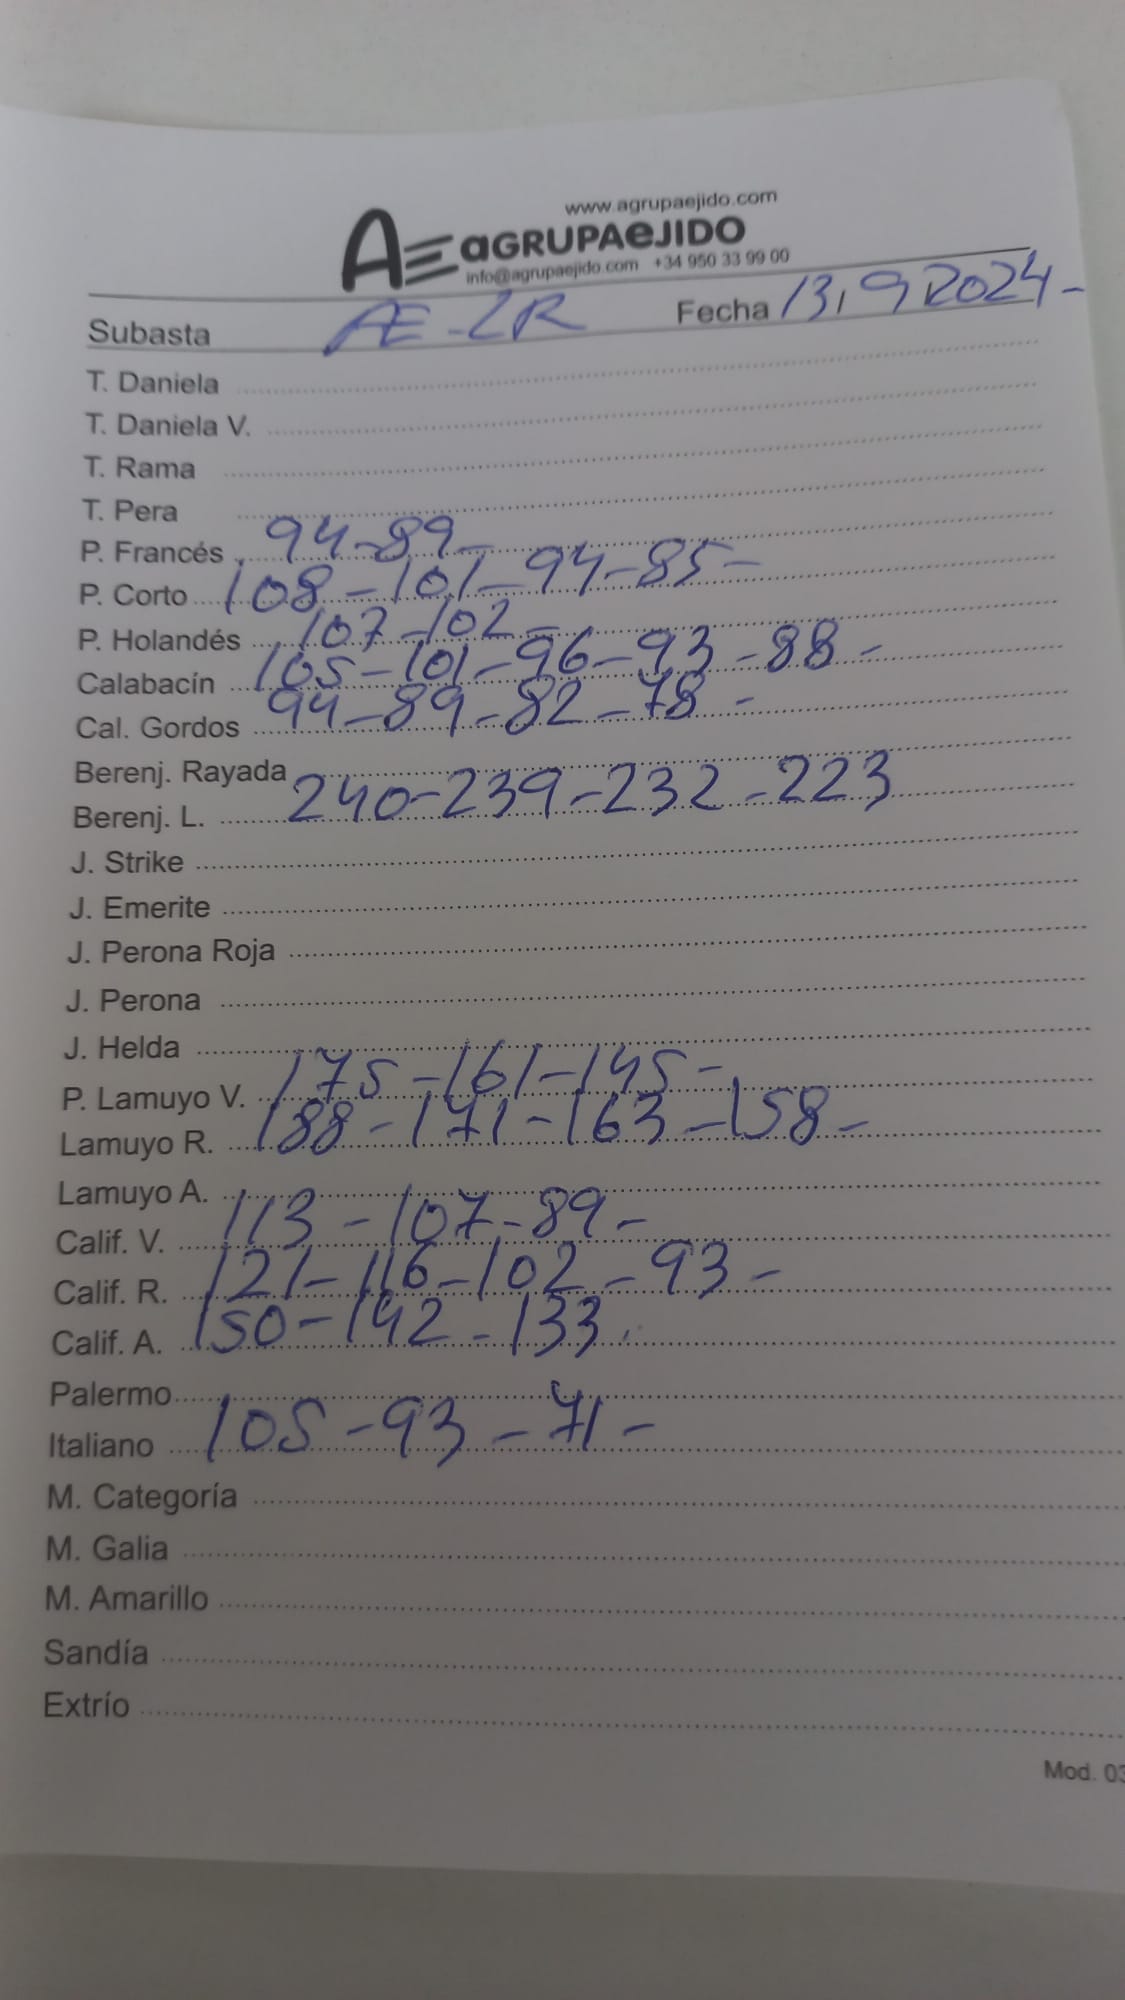 www.agrupaejido.com
AE aGRUPAeJIDO
info@agrupaejido.com +34 950 33 99 00
Subasta AE-LR Fecha 13,9,2024-
T. Daniela
T. Daniela V.
T. Rama
T. Pera
P. Francés 94-89-
P. Corto 108-101-94-85-
P. Holandés 107-102-
Calabacín 105-101-96-93-88-
Cal. Gordos 94-89-82-78-
Berenj. Rayada
Berenj. L. 240-239-232-223
J. Strike
J. Emerite
J. Perona Roja
J. Perona
J. Helda
P. Lamuyo V. 175-161-145-
Lamuyo R. 188-171-163-158-
Lamuyo A.
Calif. V. 113-107-89-
Calif. R. 121-116-102-93-
Calif. A. 150-142-133.
Palermo
Italiano 105-93-71-
M. Categoría
M. Galia
M. Amarillo
Sandía
Extrío
Mod. 03